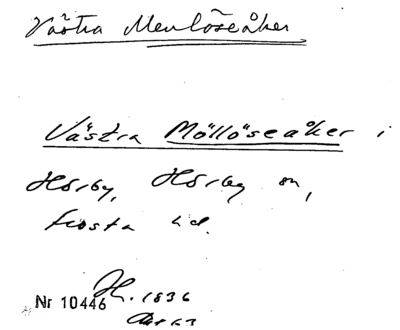 Västra Menlöseåker
Västra Möllöseåker i
Hörby, Hörby sn,
Frosta hd.
Nr 10446 H. 1836